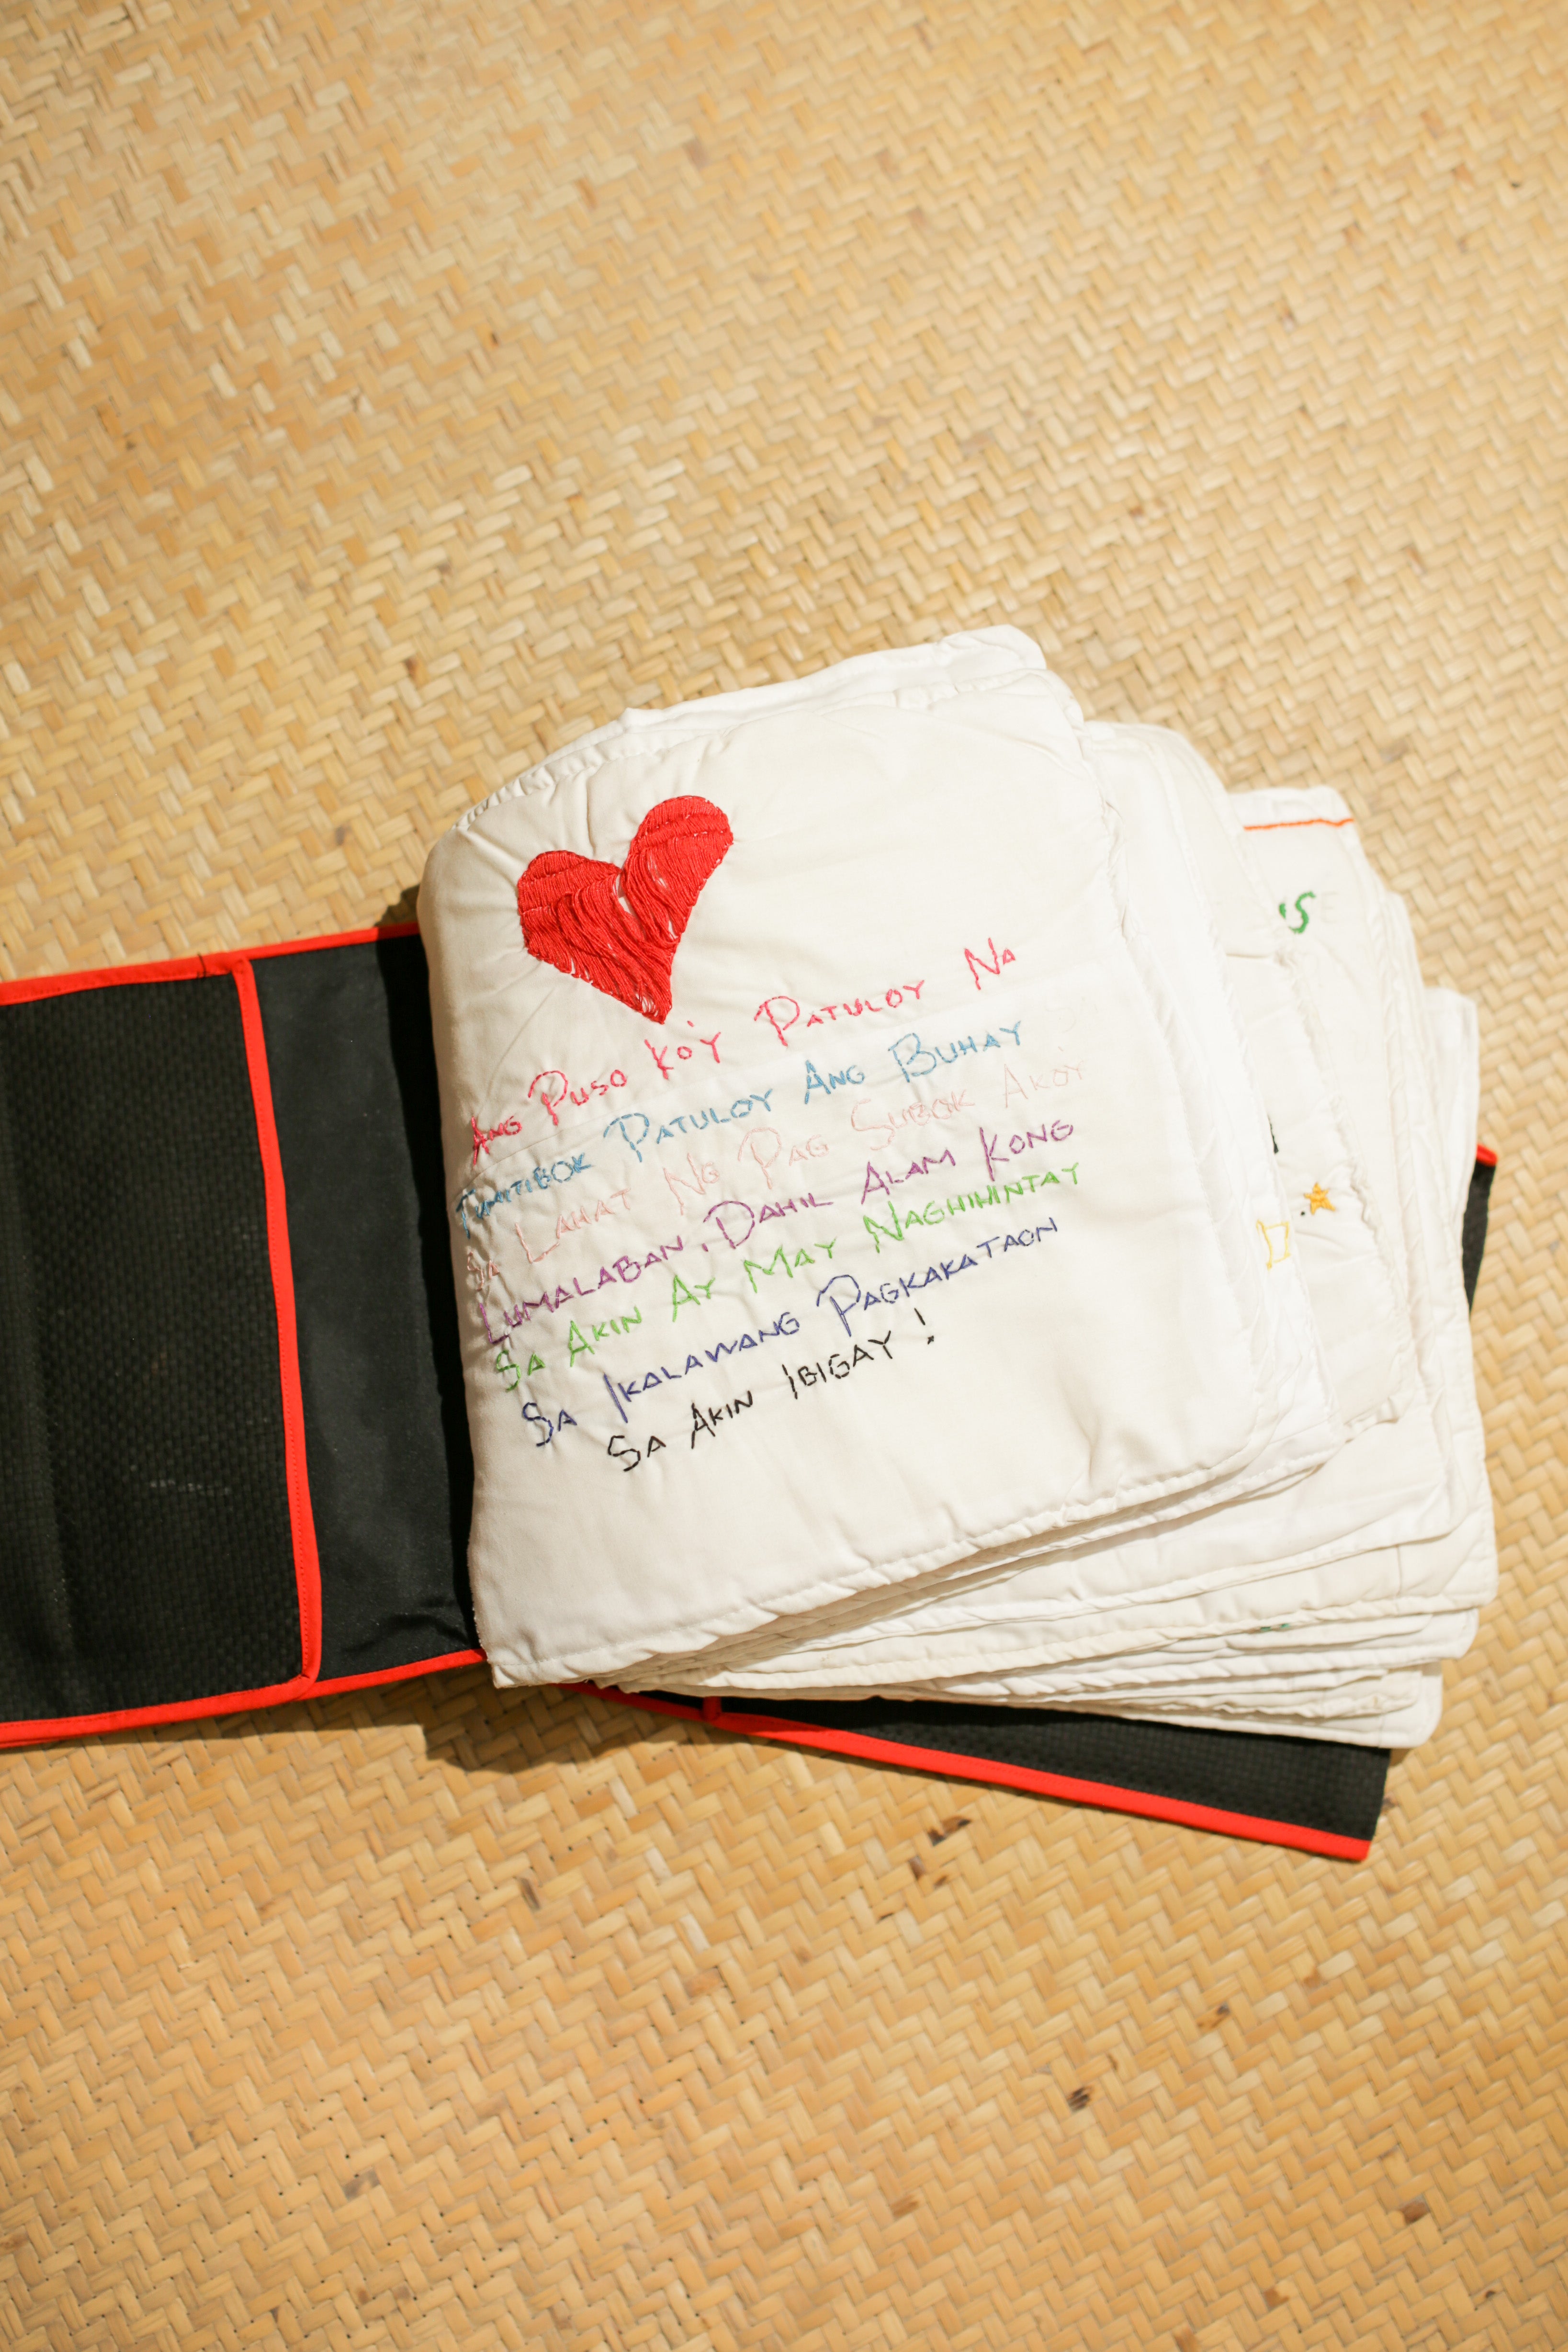 Ang Puso Ko'y Patuloy Na
Tumitibok Patuloy Ang Buhay
Sa Lahat Ng Pag Subok Ako'y
Lumalaban, Dahil Alam Kong
Sa Akin Ay May Naghihintay
Sa Ikalawang Pagkakataon
Sa Akin Ibigay!